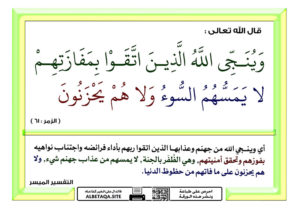 قال الله تعالى :
وَيُنَجِّى اللَّهُ الَّذِينَ اتَّقَوْا بِمَفَازَتِهِمْ
لَا يَمَسُّهُمُ السُّوءُ وَلَا هُمْ يَحْزَنُونَ
( الزمر : ٦١ )
أي وينجي الله من جهنم وعذابها الذين اتقوا ربهم بأداء فرائضه واجتناب نواهيه
بفوزهم وتحقق أمنيتهم، وهي الظَّفر بالجنة. لا يمسهم من عذاب جهنم شيء، ولا
هم يحزنون على ما فاتهم من حظوظ الدنيا.
التفسير الميسر
ALBETAQA.SITE